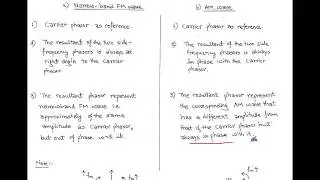 a) Narrow-band FM wave
b) AM wave
1) Carrier phasor as reference.
1) Carrier phasor as reference.
2) The resultant of the two side-
frequency phasors is always at
right angle to the carrier
phasor.
2) The resultant of the two side
frequency phasors is always
in phase with the carrier
phasor.
3) The resultant phasor represent
narrowband FM wave i.e
approximately of the same
amplitude as carrier phasor,
but out of phase with it.
3) The resultant phasor represent
the corresponding AM wave that
has a different amplitude from
that of the carrier phasor but
always in phase with it.
Note:-
fm
fm